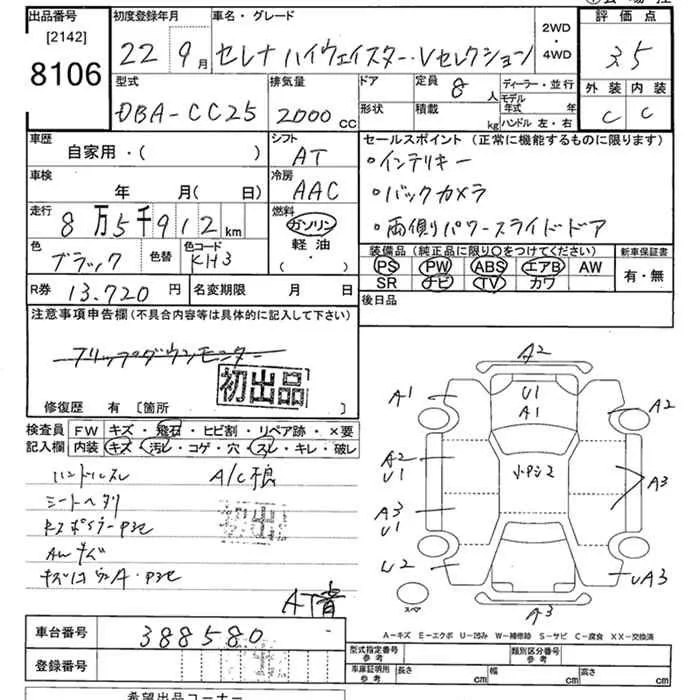 出品番号 初度登録年月 車名・グレード 2WD・4WD 評価点
[2142]
8106 22 9月 セレナ ハイウェイスター・Vセレクション 35
型式 排気量 ドア 定員 ディーラー・並行 外装 内装
DBA-CC25 2000 CC 形状 積載 8人 kg モデル年式 年 ハンドル 左・右 C C
車歴 シフト セールスポイント (正常に機能するものに限ります)
自家用・( ) AT ・インテリキー
車検 冷房 ・バックカメラ
年 月( 日) AAC
走行 燃料 ・両側パワースライドドア
8万5千912km ガソリン
色 色替 色コード 軽油 装備品 (純正品に限り○をつけてください) 新車保証書
ブラック KH3 ( ・ ) PS PW ABS エアB AW 有・無
R券 13.720円 名変期限 月 日 SR ナビ TV カワ
注意事項申告欄 (不具合内容等は具体的に記入して下さい) 後日品
フリップダウンモニター
初出品
修復歴 有 [箇所 ]
検査員 FW キズ・飛石・ヒビ割・リペア跡・×要
記入欄 内装 キズ・汚レ・コゲ・穴・スレ・キレ・破レ
ハンドルスレ A/C不良
シートヘタリ
AWキズ
A2
A1 U1 A1 A2
A2 U1 小Pシ2 A3
A3 U1
U2 UA3
スペア A3
A-キズ E-エクボ U-凹み W-補修跡 S-サビ C-腐食 XX-交換済
車台番号 388580
登録番号
型式指定番号 参考 類別区分番号 参考
車庫証明用 参考 長さ cm 幅 cm 高さ cm
希望出品コーナー